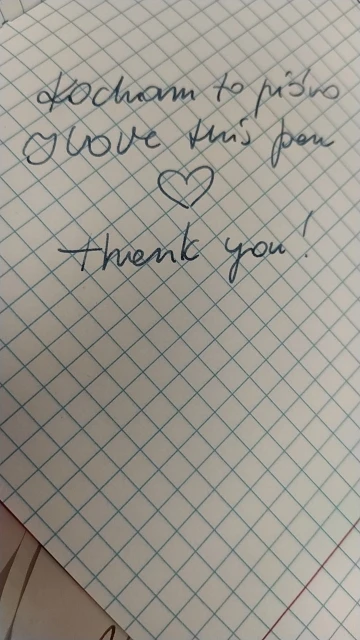 Kocham to pióro
I love this pen
♡
thank you!